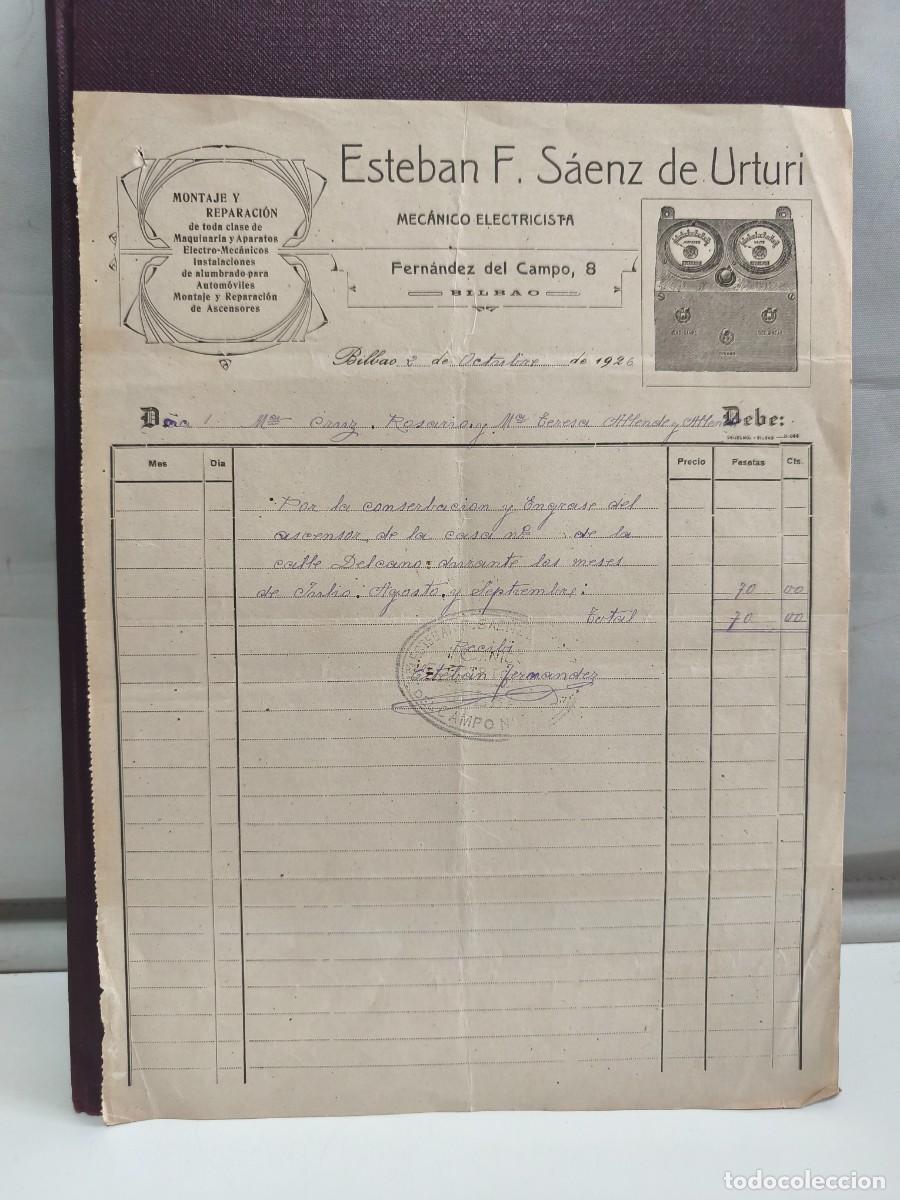 Esteban F. Sáenz de Urturi
MECÁNICO ELECTRICISTA
Fernández del Campo, 8
BILBAO
MONTAJE Y
REPARACIÓN
de toda clase de
Maquinaria y Aparatos
Electro-Mecánicos
Instalaciones
de alumbrado para
Automóviles
Montaje y Reparación
de Ascensores
Bilbao 2 de Octubre de 1926
Dña Mª Cruz, Rosario y Mª Teresa Allende y Allende Debe:
Mes Dia Precio Pesetas Cts.
Por la conserbacion y Engrase del
ascensor de la casa nº de la
calle Delcano durante los meses
de Julio. Agosto. y Septiembre: 70 00
Total 70 00
Recibi
Esteban Fernandez
DEL CAMPO N
todocoleccion